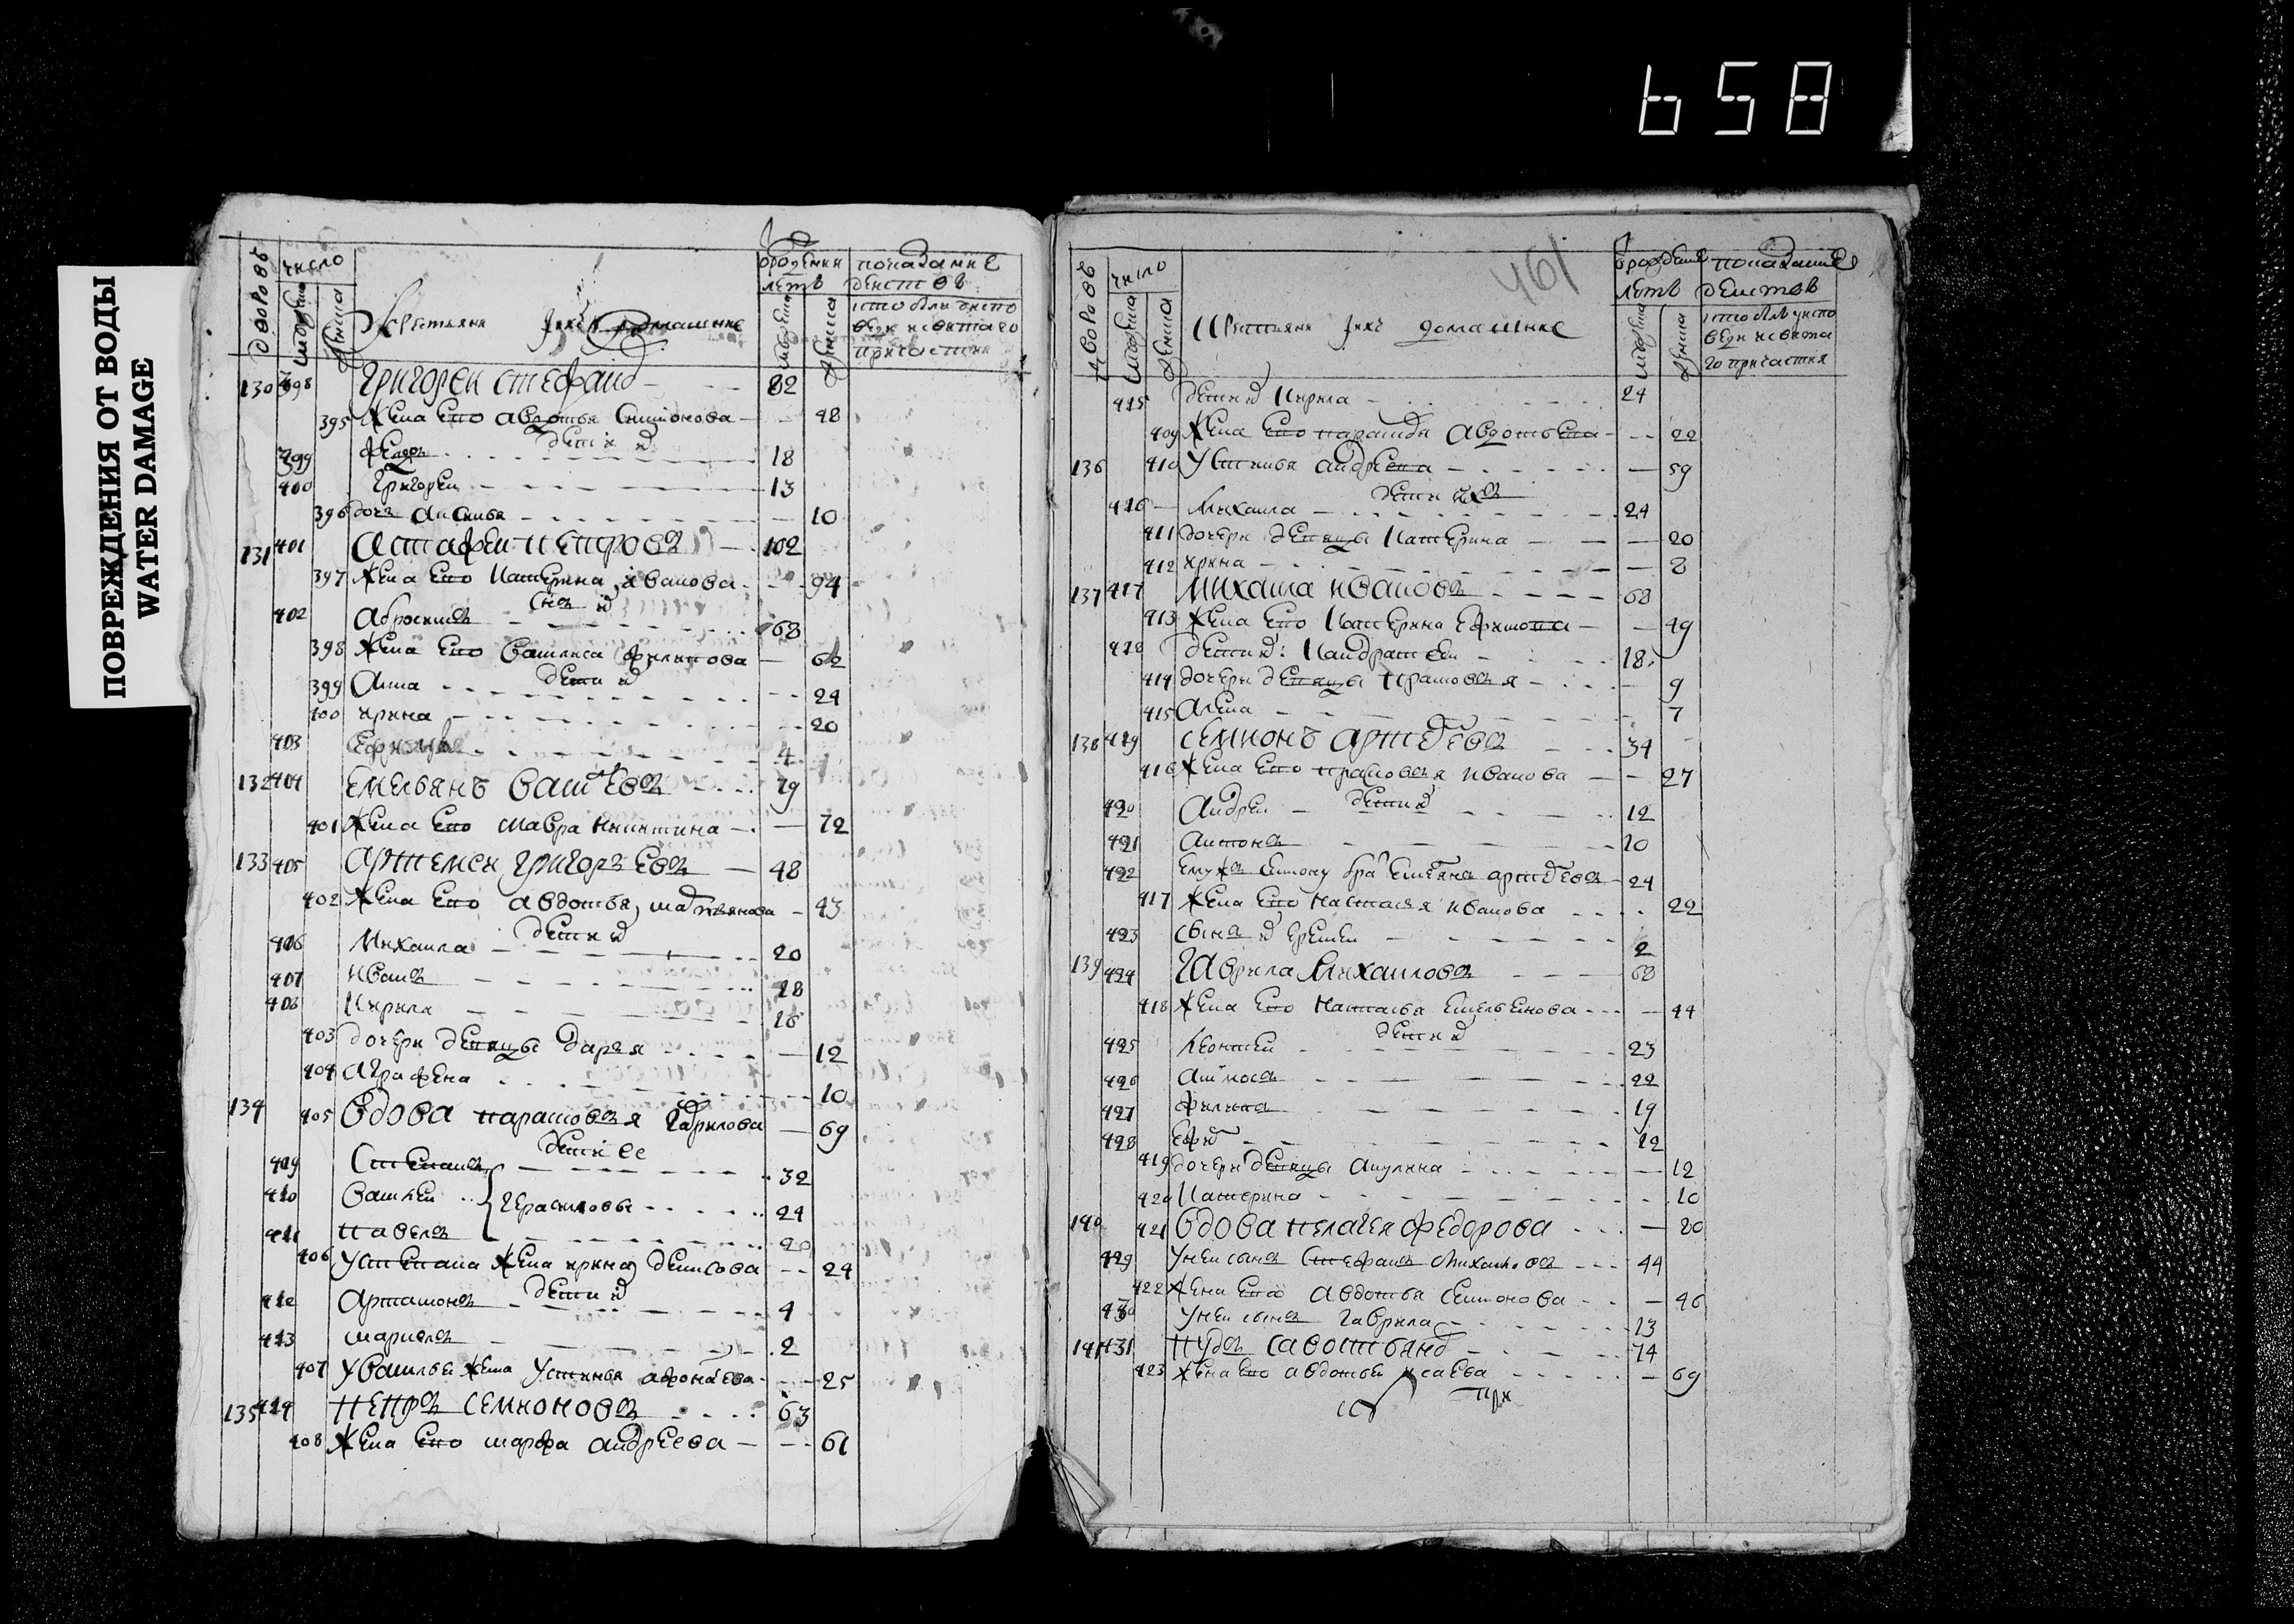 658
ПОВРЕЖДЕНИЯ ОТ ВОДЫ
WATER DAMAGE
дворовъ
число
мужеска
женска
крестьяне и ихъ домашние
от рождения
летъ
мужеска
женска
показание
действ
кто был у испо
веди и святаго
причастия
130 398 Григореи Стефанов 82
395 Жена ево Авдотья Симионова 48
дети их
399 Федор 18
400 Григореи 13
396 дочь Аксинья 10
131 401 Астафеи Петровъ 102
397 Жена ево Катерина Иванова 94
сын их
402 Аброскимъ 68
398 Жена ево Василиса Филипова 62
дети их
399 Анна 24
400 Ирина 20
403 4
132 404 Емельянъ Васильевъ 79
401 Жена ево Мавра Никитина 72
133 405 Артемеи Григорьевъ 48
402 Жена ево Авдотья 43
дети их
406 Михаила 20
407 Иванъ 18
408 Кирила 16
403 дочери девицы Дарья 12
404 Аграфена 10
134 405 Вдова Парасковья Гаврилова 69
дети ее
409 Степанъ 32
410 Василеи Герасимовы 24
411 Павелъ 20
406 у Степана жена Ирина Денисова 24
дети их
412 Артамонъ 4
413 2
407 у Василья жена Устинья Афонасева 25
135 414 Петръ Семионовъ 63
408 Жена ево Марфа Андреева 61
461
дворовъ
число
мужеска
женска
крестьяне и ихъ домашние
от рождение
летъ
мужеска
женска
показание
действ
кто был у испо
веди и свята
го причастия
415 дети их Кирила 24
409 Жена ево 22
136 410 Устинья Андреева 59
дети их
416 Михаила 24
411 дочери девицы Катерина 20
412 Ирина 8
137 417 Михаила Ивановъ 68
413 Жена ево Катерина Ефимова 49
418 дети их: Кандратеи 18
414 дочери девицы Прасковья 9
415 Алена 7
138 419 Семионъ Артемьевъ 34
416 Жена ево Прасковья Иванова 27
дети их
420 Андреи 12
421 Антонъ 10
422 ему ж Симиону брат Артемьевъ 24
417 Жена ево Настасья Иванова 22
423 сынъ их Еремеи 2
139 424 Гаврила Михаиловъ 68
418 Жена ево Настасья Емельянова 44
дети их
425 Леонтеи 23
426 22
427 Филипъ 19
428 Ефим 12
419 дочери девицы Акулина 12
420 Катерина 10
140 421 Вдова Пелагея Федорова 80
429 у неи сынъ Стефанъ Михаиловъ 44
422 Жена ево Авдотья Семионова 46
430 у неи сынъ Гаврила 13
141 431 Савостьянов 74
423 Жена ево Авдотья Исаева 69